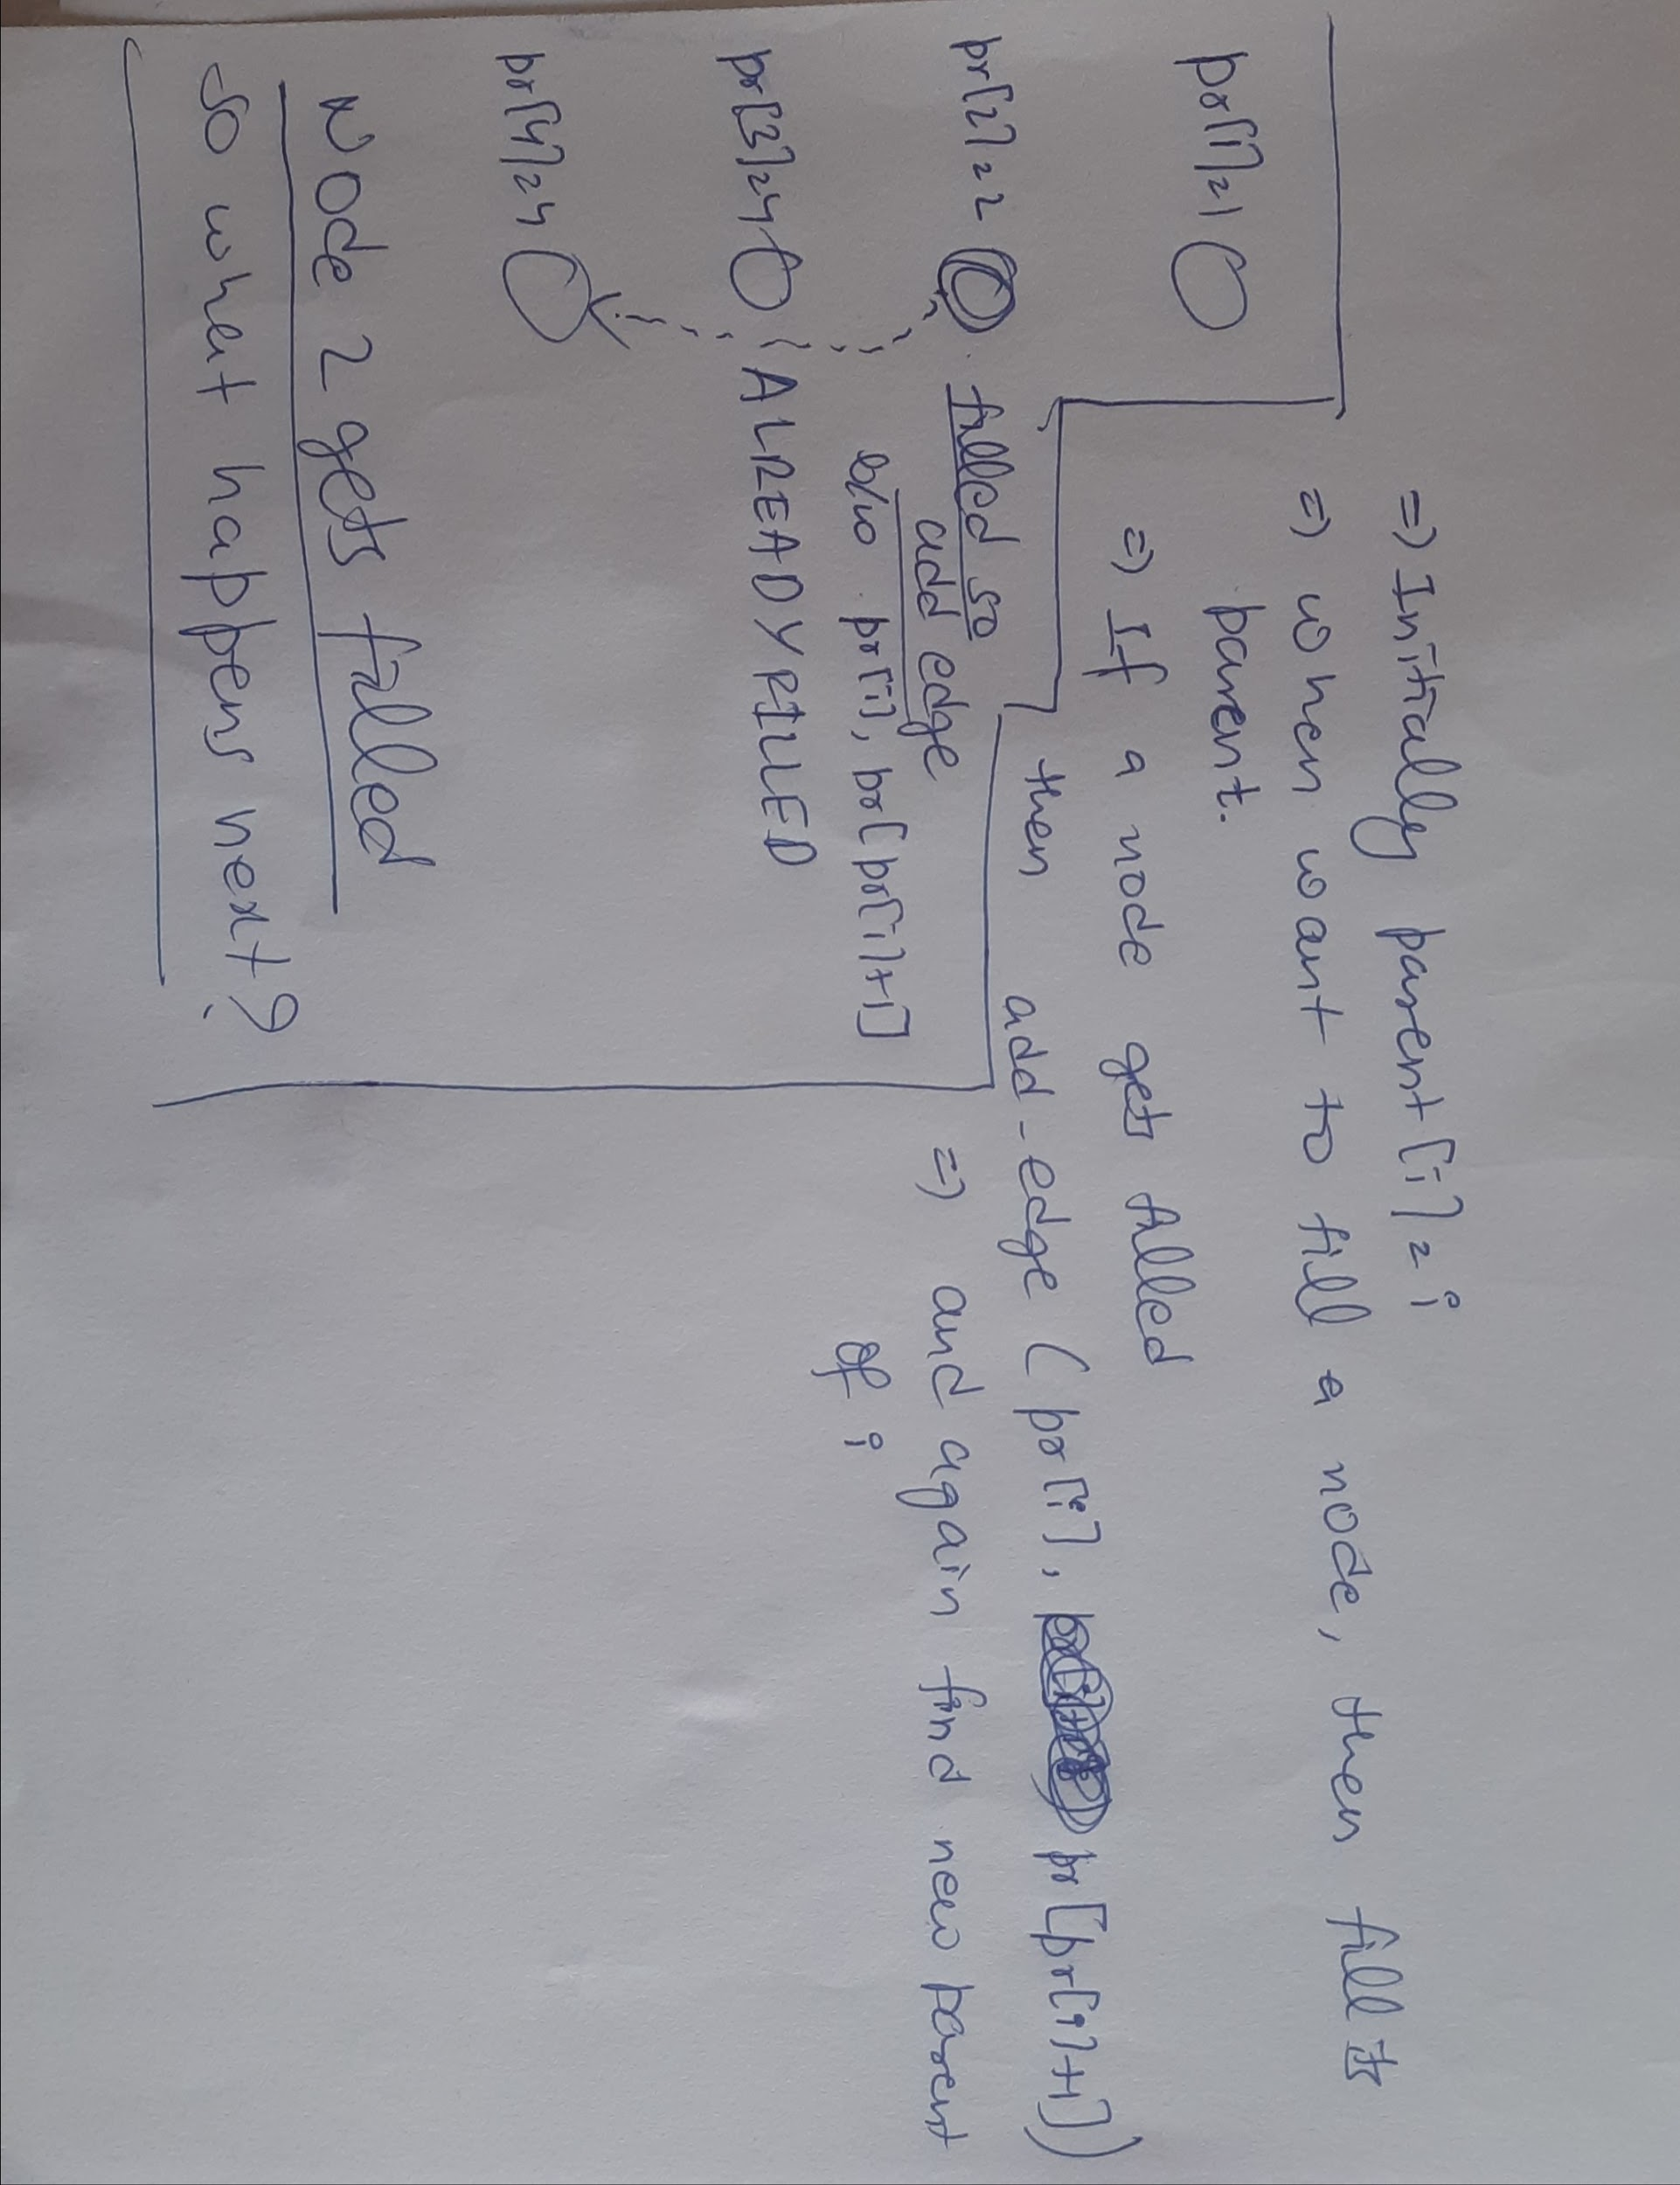 =) Initially parent[i] = i
=) when want to fill a node, then fill its
parent.
=) If a node gets filled
then add-edge (pr[i], pr[pr[i]+1])
=) and again find new parent
of i
pr[1]=1
pr[2]=2
filled so
add edge
b/w pr[i], pr[pr[i]+1]
pr[3]=4
ALREADY FILLED
pr[4]=4
Node 2 gets filled
so what happens next?